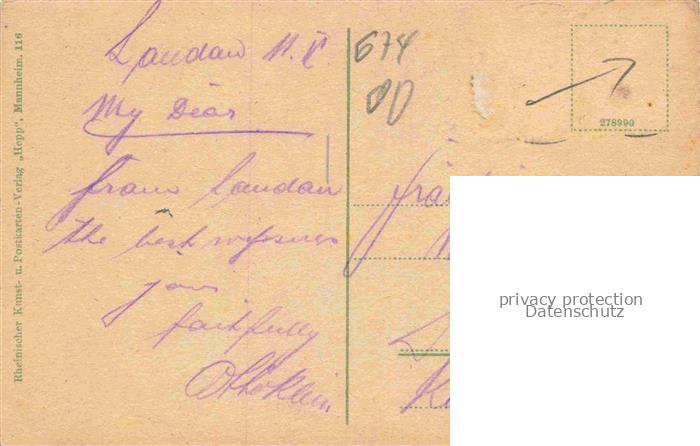 Rheinischer Kunst- u. Postkarten-Verlag „Hepp", Mannheim. 116
Landau 11. V.
My Dear
from Landau
the best
your
faithfully
Otto Klein
674
278990
privacy protection
Datenschutz